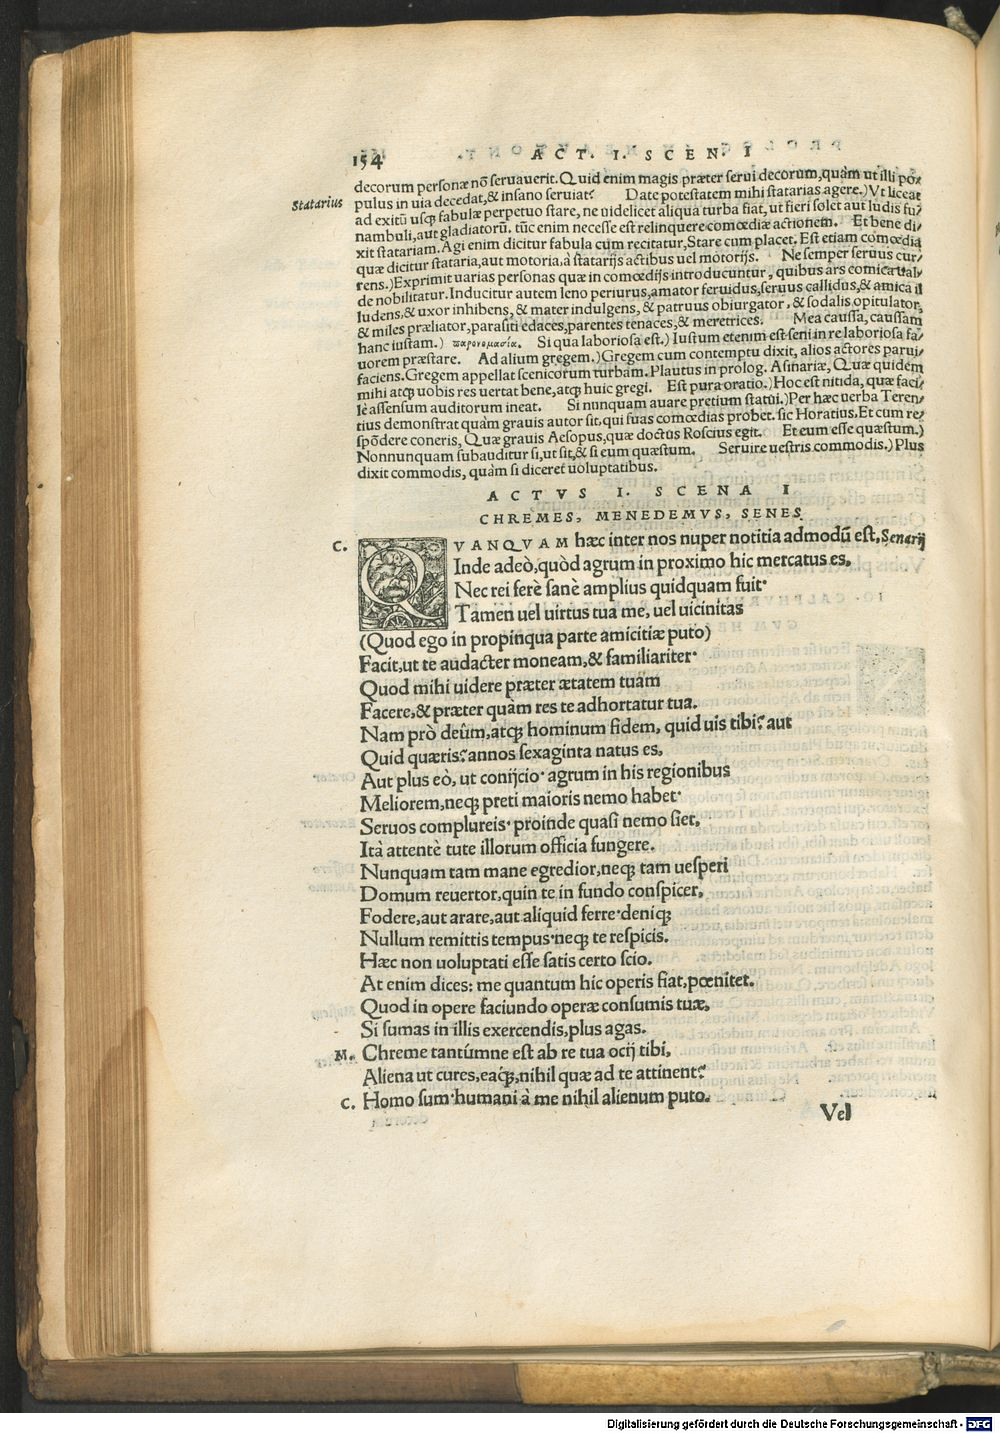 154 ACT. I. SCEN. I
decorum personæ nõ seruauerit. Quid enim magis præter serui decorum, quàm ut illi po-
Statarius pulus in uia decedat, & insano seruiat? Date potestatem mihi statarias agere.) Vt liceat
ad exitũ usq; fabulæ perpetuo stare, ne uidelicet aliqua turba fiat, ut fieri solet aut ludis fu-
nambuli, aut gladiatorũ. tũc enim necesse est relinquere comœdiæ actionem. Et bene di-
xit statariam. Agi enim dicitur fabula cum recitatur, Stare cum placet. Est etiam comœdia
quæ dicitur stataria, aut motoria, à statarijs actibus uel motorijs. Ne semper seruus cur-
rens.) Exprimit uarias personas quæ in comœdijs introducuntur, quibus ars comica ual-
de nobilitatur. Inducitur autem leno periurus, amator feruidus, seruus callidus, & amica il
ludens, & uxor inhibens, & mater indulgens, & patruus obiurgator, & sodalis opitulator,
& miles præliator, parasiti edaces, parentes tenaces, & meretrices. Mea caussa, caussam
hanc iustam.) παρονομασία. Si qua laboriosa est.) Iustum etenim est seni in re laboriosa fa-
uorem præstare. Ad alium gregem.) Gregem cum contemptu dixit, alios actores parui-
faciens. Gregem appellat scenicorum turbam. Plautus in prolog. Asinariæ, Quæ quidem
mihi atq; uobis res uertat bene, atq; huic gregi. Est pura oratio.) Hoc est nitida, quæ faci-
lè assensum auditorum ineat. Si nunquam auare pretium statui.) Per hæc uerba Teren-
tius demonstrat quàm grauis autor sit, qui suas comœdias probet. sic Horatius, Et cum re-
spõdere coneris, Quæ grauis Aesopus, quæ doctus Roscius egit. Et eum esse quæstum.)
Nonnunquam subauditur si, ut sit, & si eum quæstum. Seruire uestris commodis.) Plus
dixit commodis, quàm si diceret uoluptatibus.
ACTVS I. SCENA I
CHREMES, MENEDEMVS, SENES.
C. QVANQVAM hæc inter nos nuper notitia admodũ est, Senarij
Inde adeò, quòd agrum in proximo hic mercatus es,
Nec rei ferè sanè amplius quidquam fuit·
Tamen uel uirtus tua me, uel uicinitas
(Quod ego in propinqua parte amicitiæ puto)
Facit, ut te audacter moneam, & familiariter·
Quod mihi uidere præter ætatem tuam
Facere, & præter quàm res te adhortatur tua.
Nam prò deûm, atq; hominum fidem, quid uis tibi? aut
Quid quæris? annos sexaginta natus es,
Aut plus eò, ut conijcio· agrum in his regionibus
Meliorem, neq; preti maioris nemo habet·
Seruos complureis· proinde quasi nemo siet,
Ità attentè tute illorum officia fungere.
Nunquam tam mane egredior, neq; tam uesperi
Domum reuertor, quin te in fundo conspicer,
Fodere, aut arare, aut aliquid ferre· deniq;
Nullum remittis tempus· neq; te respicis.
Hæc non uoluptati esse satis certo scio.
At enim dices: me quantum hic operis fiat, pœnitet.
Quod in opere faciundo operæ consumis tuæ,
Si sumas in illis exercendis, plus agas.
M. Chreme tantúmne est ab re tua ocij tibi,
Aliena ut cures, eaq́;, nihil quæ ad te attinent?
C. Homo sum· humani à me nihil alienum puto.
Vel
Digitalisierung gefördert durch die Deutsche Forschungsgemeinschaft - DFG